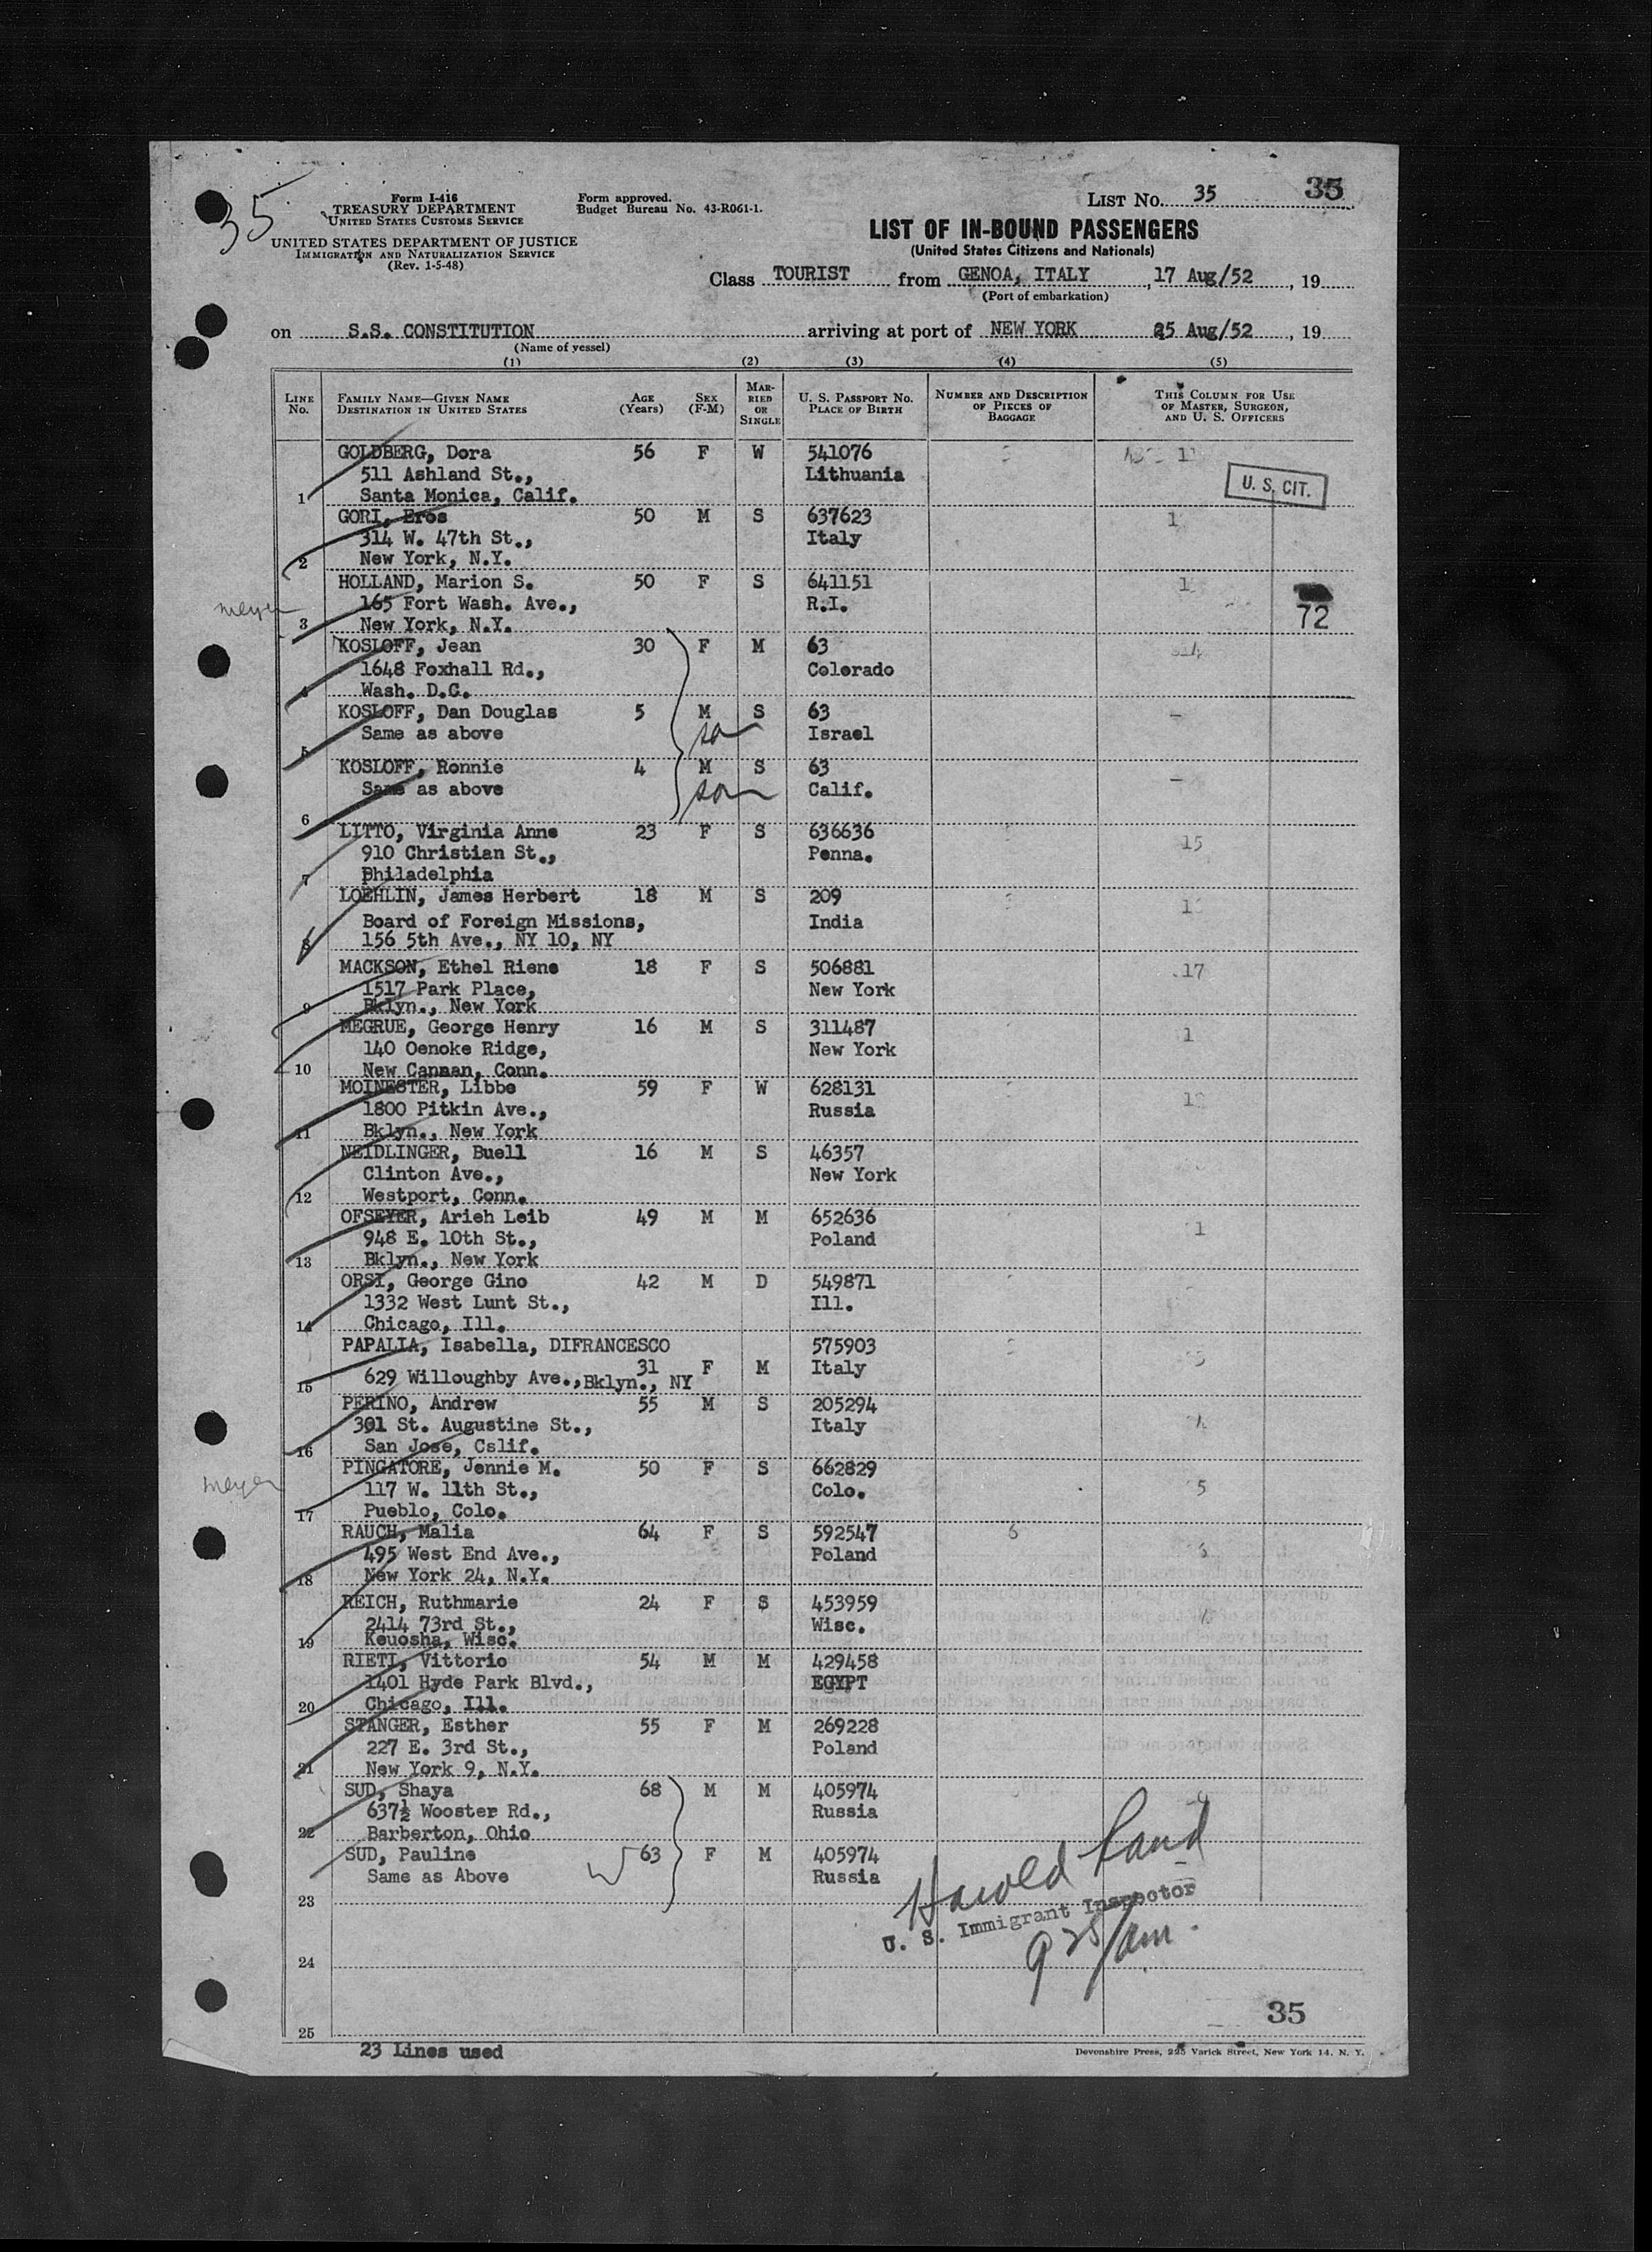 35
Form I-416
TREASURY DEPARTMENT
UNITED STATES CUSTOMS SERVICE
UNITED STATES DEPARTMENT OF JUSTICE
IMMIGRATION AND NATURALIZATION SERVICE
(Rev. 1-5-48)
Form approved.
Budget Bureau No. 43-R061-1.
LIST No. 35
35
LIST OF IN-BOUND PASSENGERS
(United States Citizens and Nationals)
Class TOURIST from GENOA, ITALY, 17 Aug/52, 19
(Port of embarkation)
on S.S. CONSTITUTION arriving at port of NEW YORK 25 Aug/52, 19
(Name of vessel)
(1) (2) (3) (4) (5)
LINE No. FAMILY NAME—GIVEN NAME DESTINATION IN UNITED STATES AGE (Years) SEX (F-M) MARRIED OR SINGLE U. S. PASSPORT NO. PLACE OF BIRTH NUMBER AND DESCRIPTION OF PIECES OF BAGGAGE THIS COLUMN FOR USE OF MASTER, SURGEON, AND U. S. OFFICERS
GOLDBERG, Dora 56 F W 541076
511 Ashland St., Lithuania
U. S. CIT.
1 Santa Monica, Calif.
GORI, Eros 50 M S 637623 1
314 W. 47th St., Italy
2 New York, N.Y.
HOLLAND, Marion S. 50 F S 641151 1
meyer 165 Fort Wash. Ave., R.I. 72
3 New York, N.Y.
KOSLOFF, Jean 30 F M 63
1648 Foxhall Rd., Colorado
4 Wash. D.C.
KOSLOFF, Dan Douglas 5 M S 63 -
Same as above son Israel
5
KOSLOFF, Ronnie 4 M S 63 -
Same as above son Calif.
6
LITTO, Virginia Anne 23 F S 636636 15
910 Christian St., Penna.
7 Philadelphia
LOEHLIN, James Herbert 18 M S 209
Board of Foreign Missions, India
8 156 5th Ave., NY 10, NY
MACKSON, Ethel Riene 18 F S 506881 17
1517 Park Place, New York
9 Bklyn., New York
MEGRUE, George Henry 16 M S 311487 1
140 Oenoke Ridge, New York
10 New Canaan, Conn.
MOINESTER, Libbe 59 F W 628131
1800 Pitkin Ave., Russia
11 Bklyn., New York
NEIDLINGER, Buell 16 M S 46357
Clinton Ave., New York
12 Westport, Conn.
OFSEYER, Arieh Leib 49 M M 652636 1
948 E. 10th St., Poland
13 Bklyn., New York
ORSI, George Gino 42 M D 549871
1332 West Lunt St., Ill.
14 Chicago, Ill.
PAPALIA, Isabella, DIFRANCESCO 575903
31 F M Italy
15 629 Willoughby Ave., Bklyn., NY
PERINO, Andrew 55 M S 205294
301 St. Augustine St., Italy 4
16 San Jose, Cslif.
PINGATORE, Jennie M. 50 F S 662829
meyer 117 W. 11th St., Colo. 5
17 Pueblo, Colo.
RAUCH, Malia 64 F S 592547 6
495 West End Ave., Poland 6
18 New York 24, N.Y.
REICH, Ruthmarie 24 F S 453959
2414 73rd St., Wisc.
19 Keuosha, Wisc.
RIETI, Vittorio 54 M M 429458
1401 Hyde Park Blvd., EGYPT
20 Chicago, Ill.
STANGER, Esther 55 F M 269228
227 E. 3rd St., Poland
21 New York 9, N.Y.
SUD, Shaya 68 M M 405974
637½ Wooster Rd., Russia
22 Barberton, Ohio
SUD, Pauline 63 F M 405974
Same as Above Russia
23
Harold Rand
U. S. Immigrant Inspector
9 25/am.
24
35
25
23 Lines used
Devonshire Press, 225 Varick Street, New York 14, N. Y.